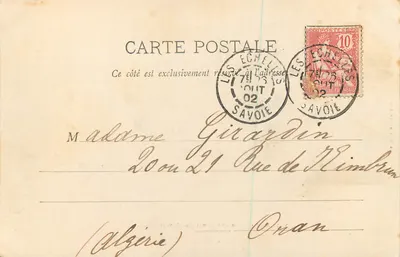 CARTE POSTALE
Ce côté est exclusivement réservé à l'adresse
LES ECHELLES
AOUT
02
SAVOIE
10
LES ECHELLES
OUT
02
SAVOIE
Madame Girardin
20 ou 21 Rue de
(Algérie) Oran